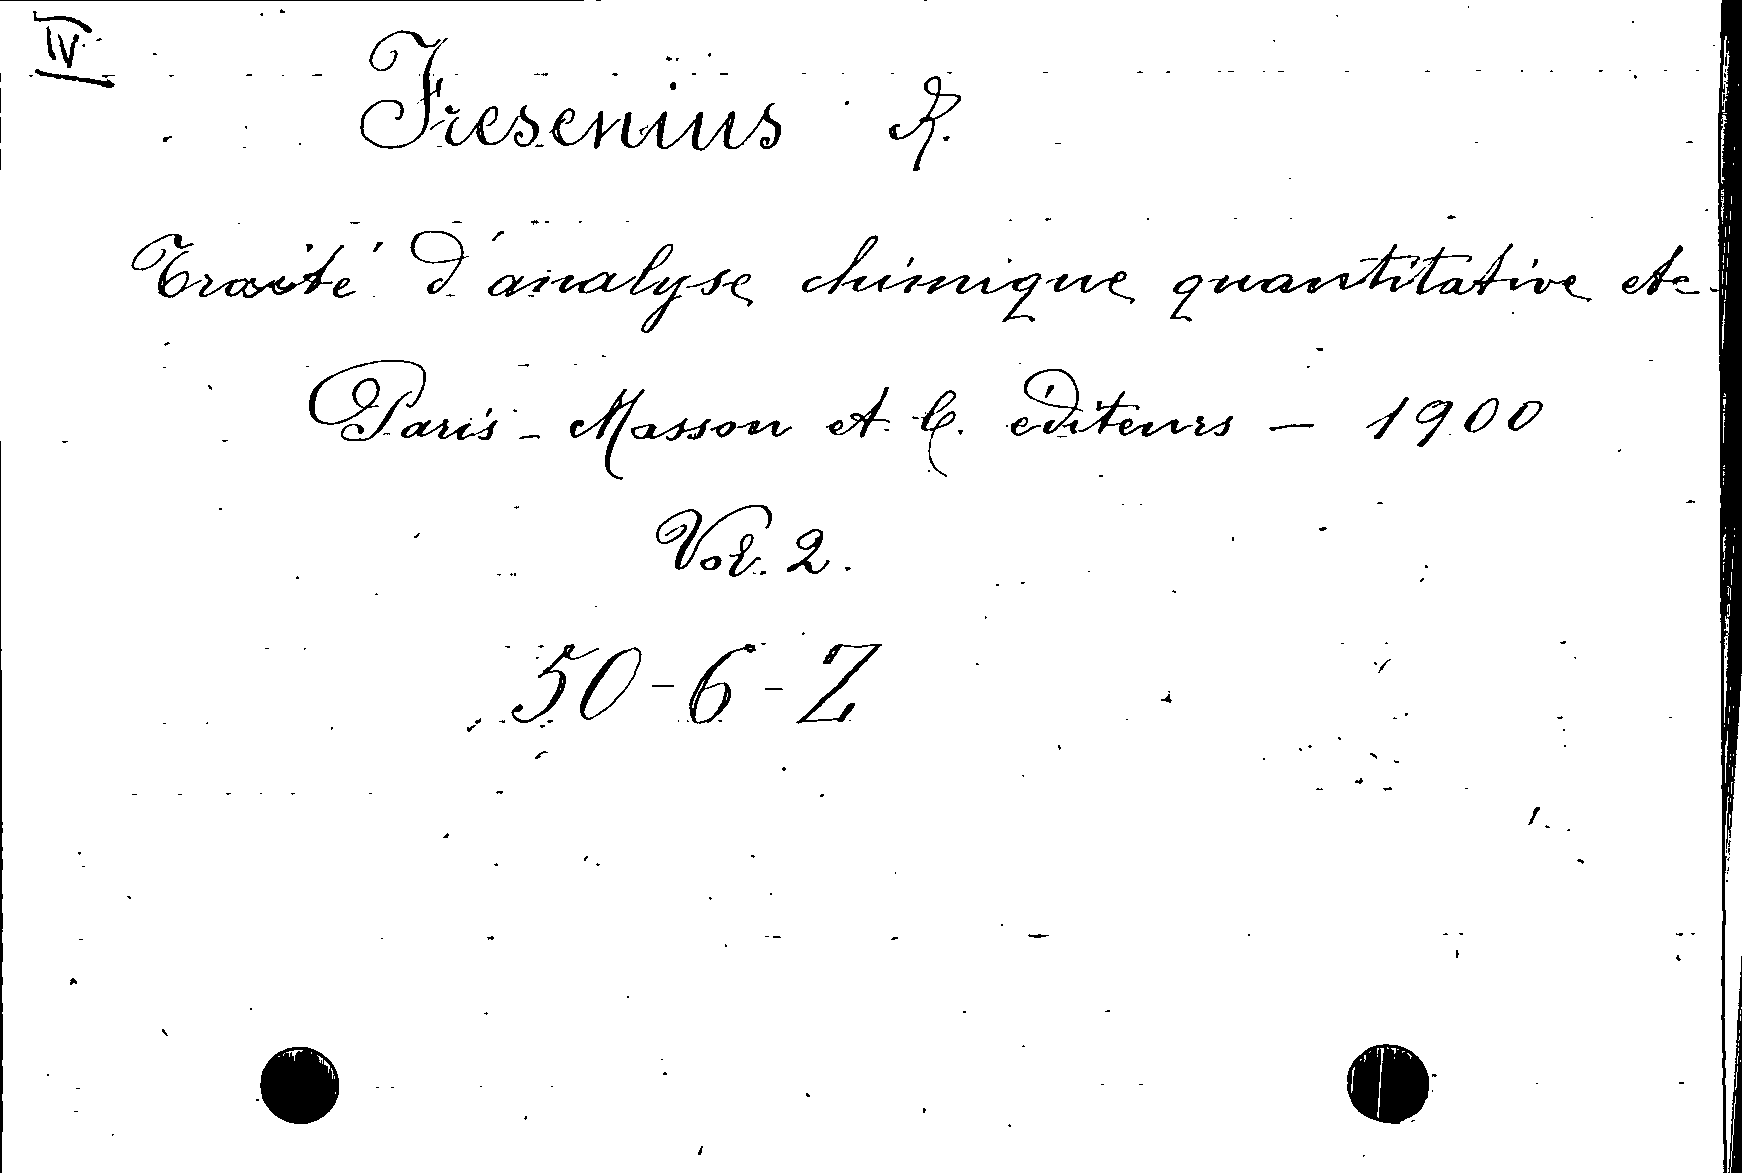 IV
Fresenius R.
Traité d'analyse chimique quantitative etc.
Paris - Masson et C. éditeurs — 1900
Vol. 2.
50-6-Z